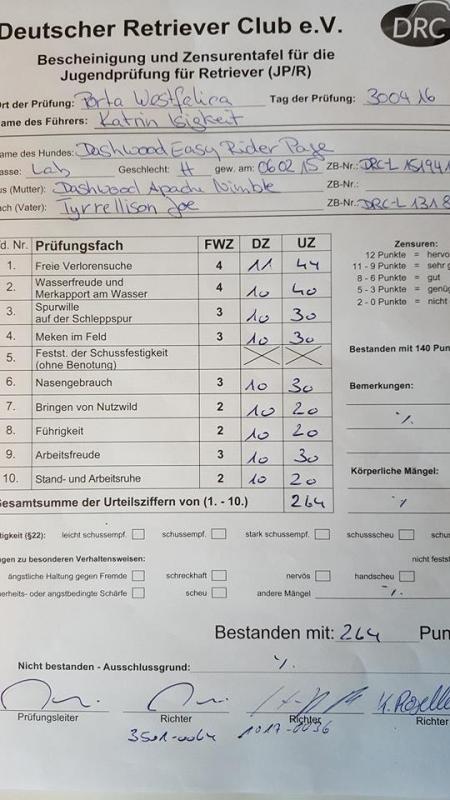 Deutscher Retriever Club e.V.
DRC
Bescheinigung und Zensurentafel für die
Jugendprüfung für Retriever (JP/R)
Ort der Prüfung: Porta Westfalica Tag der Prüfung: 300416
ame des Führers: Katrin Isigkeit
ame des Hundes: Dashwood Easy Rider Page
asse: Lab Geschlecht: H gew. am: 060215 ZB-Nr.: DRC-L 151941
us (Mutter): Dashwood Apachi Nimble ZB-Nr.:
ach (Vater): Tyrrellison Joe ZB-Nr.: DRC-L 1318
d. Nr. Prüfungsfach FWZ DZ UZ
1. Freie Verlorensuche 4 11 44
2. Wasserfreude und Merkapport am Wasser 4 10 40
3. Spurwille auf der Schleppspur 3 10 30
4. Meken im Feld 3 10 30
5. Festst. der Schussfestigkeit (ohne Benotung)
6. Nasengebrauch 3 10 30
7. Bringen von Nutzwild 2 10 20
8. Führigkeit 2 10 20
9. Arbeitsfreude 3 10 30
10. Stand- und Arbeitsruhe 2 10 20
Gesamtsumme der Urteilsziffern von (1. - 10.) 264
Zensuren:
12 Punkte = hervo
11 - 9 Punkte = sehr g
8 - 6 Punkte = gut
5 - 3 Punkte = genüg
2 - 0 Punkte = nicht
Bestanden mit 140 Pun
Bemerkungen:
./.
Körperliche Mängel:
./.
tigkeit (§22): leicht schussempf. schussempf. stark schussempf. schussscheu schus
gen zu besonderen Verhaltensweisen: nicht festst
ängstliche Haltung gegen Fremde schreckhaft nervös handscheu
erheits- oder angstbedingte Schärfe scheu andere Mängel ./.
Bestanden mit: 264 Pun
Nicht bestanden - Ausschlussgrund: ./.
Prüfungsleiter Richter Richter Richter
3501-0064 1017-0036